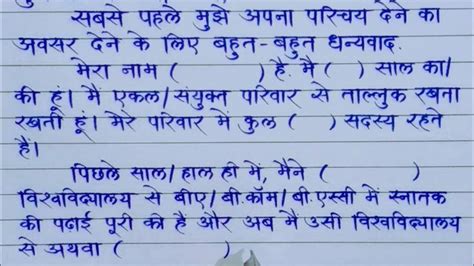 सबसे पहले मुझे अपना परिचय देने का
अवसर देने के लिए बहुत-बहुत धन्यवाद.
मेरा नाम ( ) है. मैं ( ) साल का/
की हूं। मैं एकल/संयुक्त परिवार से ताल्लुक रखता
रखती हूं। मेरे परिवार में कुल ( ) सदस्य रहते
हैं।
पिछले साल/हाल ही में, मैंने ( )
विश्वविद्यालय से बीए/बी.कॉम/बी.एस्सी में स्नातक
की पढ़ाई पूरी की है और अब मैं उसी विश्वविद्यालय
से अथवा ( )